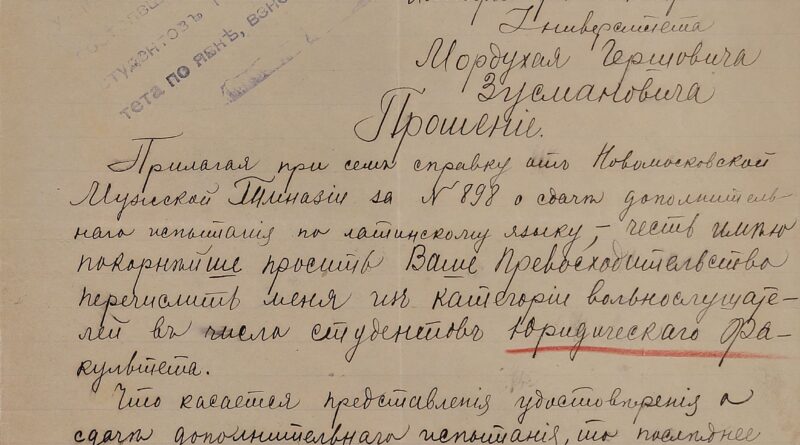 студентовъ
тета по ЯЕНѢ, взнос
Университета
Мордухая Гершовича
Зусмановича
Прошеніе.
Прилагая при семъ справку отъ Новомосковской
Мужской Гимназіи за № 898 о сдачѣ дополнитель-
наго испытанія по латинскому языку, – честь имѣю
покорнѣйше просить Ваше Превосходительство
перечислить меня изъ категоріи вольнослушате-
лей въ число студентовъ Юридическаго Фа-
культета.
Что касается представленія удостовѣренія о
сдачѣ дополнительнаго испытанія, то послѣднее